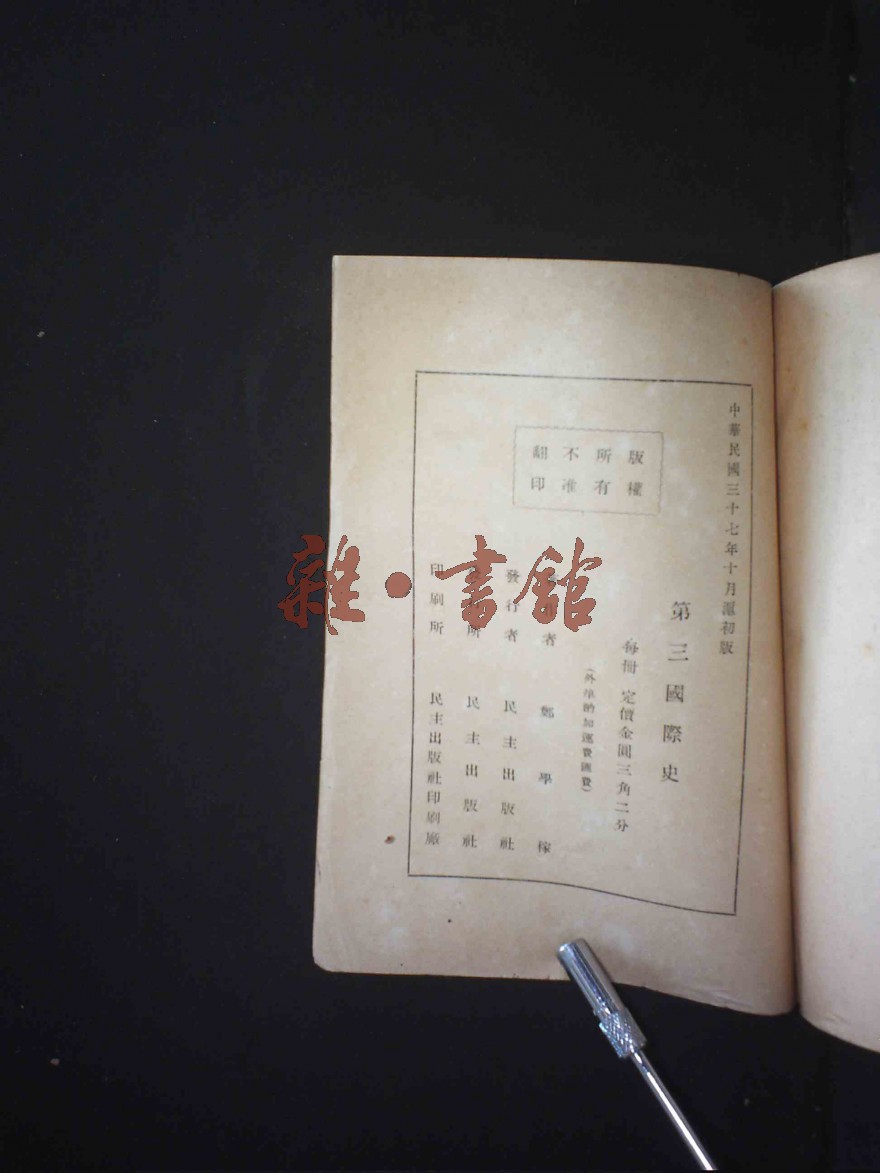 中華民國三十七年十月滬初版
第三國際史
每冊 定價金圓三角二分
(外埠酌加運費匯費)
版權
所有
不准
翻印
者 鄭學稼
發行者 民主出版社
所 民主出版社
印刷所 民主出版社印刷廠
雜·書館